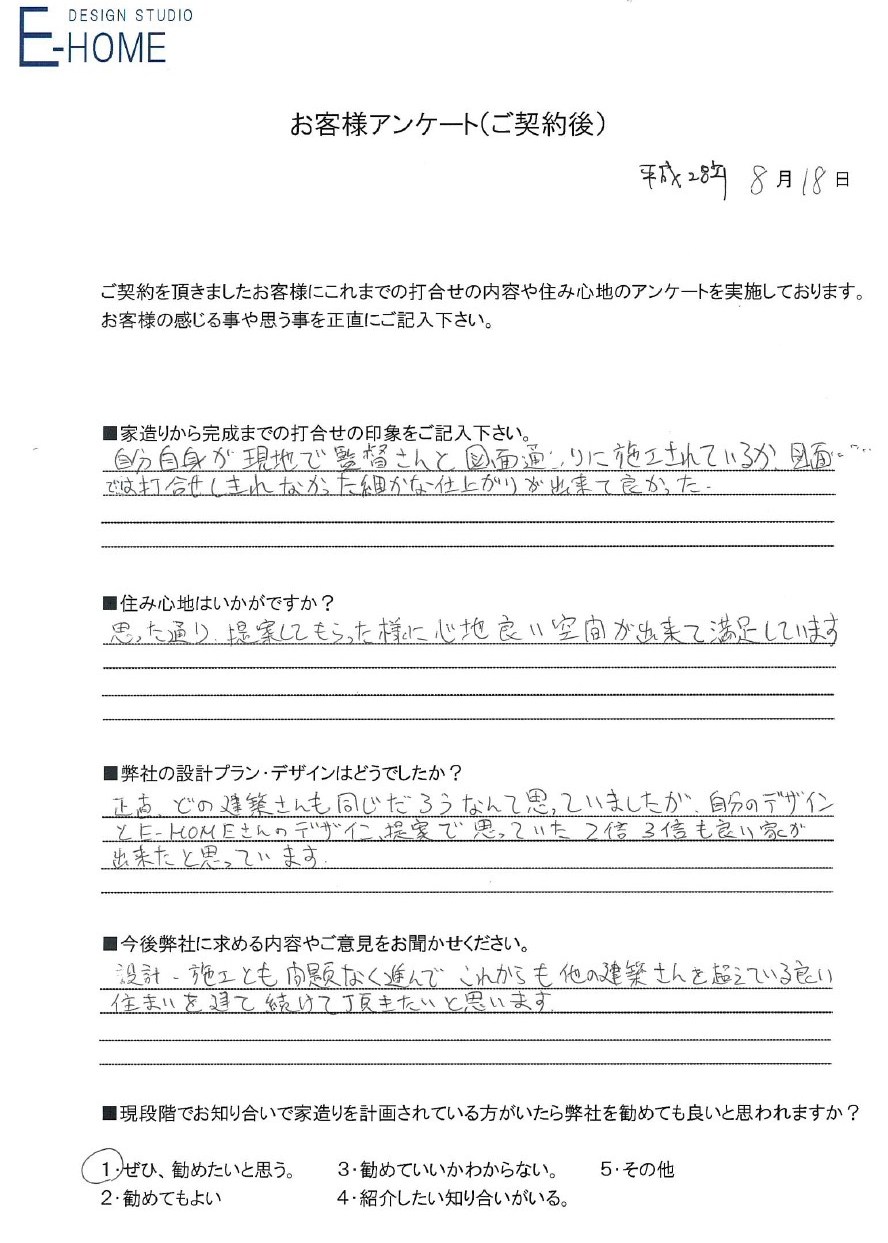 DESIGN STUDIO
E-HOME
お客様アンケート(ご契約後)
平成28年 8月18日
ご契約を頂きましたお客様にこれまでの打合せの内容や住み心地のアンケートを実施しております。
お客様の感じる事や思う事を正直にご記入下さい。
■家造りから完成までの打合せの印象をご記入下さい。
自分自身が現地で監督さんと図面通りに施工されているか、図面…
では打合せしきれなかった細かな仕上がりが出来て良かった。
■住み心地はいかがですか?
思った通り、提案してもらった様に心地良い空間が出来て満足しています
■弊社の設計プラン・デザインはどうでしたか?
正直、どの建築さんも同じだろうなんて思っていましたが、自分のデザイン
とE-HOMEさんのデザイン、提案で思っていた2倍3倍も良い家が
出来たと思っています。
■今後弊社に求める内容やご意見をお聞かせください。
設計・施工とも問題なく進んで これからも他の建築さんを超えている良い
住まいを建て続けて頂きたいと思います。
■現段階でお知り合いで家造りを計画されている方がいたら弊社を勧めても良いと思われますか?
1・ぜひ、勧めたいと思う。 3・勧めていいかわからない。 5・その他
2・勧めてもよい 4・紹介したい知り合いがいる。